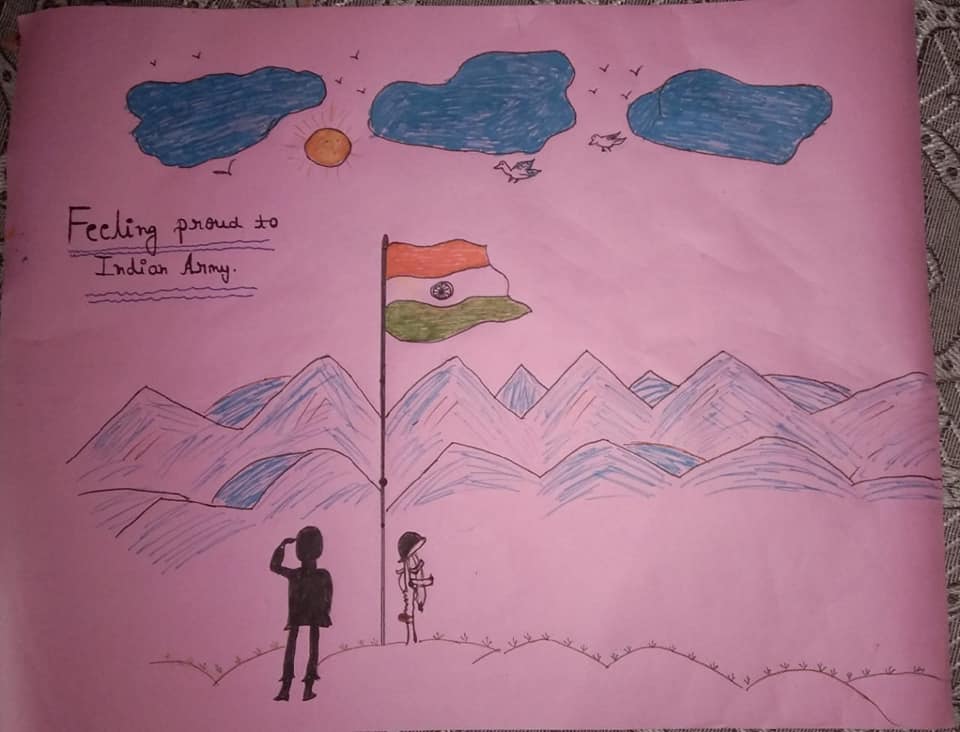 Feeling proud to
Indian Army.